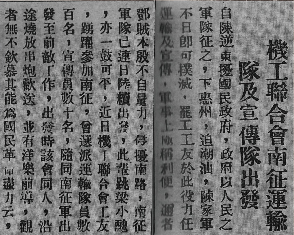 機工聯合會南征運輸
隊及宣傳隊出發
自陳逆東擾國民政府，政府以人民之
軍隊征之，下惠州，追潮汕，陳家軍
不日即可撲滅，罷工工友於此役力任
運輸及宣傳，軍事上極稱利便，
鄧賊本殷不自量力，擾南路，南征
軍隊已連日陸續出發，此電跳梁小醜
，亦一鼓可平，近日機聯合會工友
，踴躍參加南征，曾選派運輸隊員數
百名，宣傳員數十名，隨同南征軍出
發至前敵工作，出發時該會同人，沿
途燒放串炮歡送，並有洋樂前導，觀
者無不欽慕其能為國民革命盡力云，